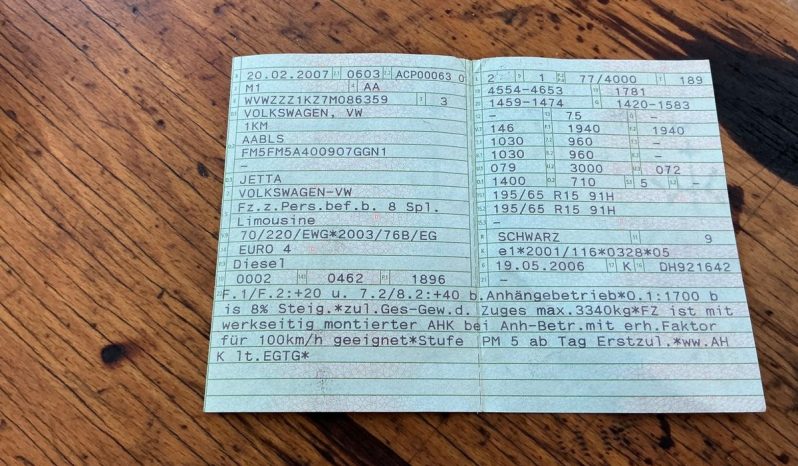 20.02.2007 0603 ACP00063 0
M1 AA
WVWZZZ1KZ7M086359 3
VOLKSWAGEN, VW
1KM
AABLS
FM5FM5A400907GGN1
–
JETTA
VOLKSWAGEN-VW
Fz.z.Pers.bef.b. 8 Spl.
Limousine
70/220/EWG*2003/76B/EG
EURO 4
Diesel
0002 0462 1896
2 1 77/4000 189
4554-4653 1781
1459-1474 1420-1583
– 75 –
146 1940 1940
1030 960 –
1030 960 –
079 3000 072
1400 710 5 –
195/65 R15 91H
195/65 R15 91H
–
SCHWARZ 9
e1*2001/116*0328*05
19.05.2006 K DH921642
–
F.1/F.2:+20 u. 7.2/8.2:+40 b.Anhängebetrieb*O.1:1700 b
is 8% Steig.*zul.Ges-Gew.d. Zuges max.3340kg*FZ ist mit
werkseitig montierter AHK bei Anh-Betr.mit erh.Faktor
für 100km/h geeignet*Stufe PM 5 ab Tag Erstzul.*ww.AH
K lt.EGTG*